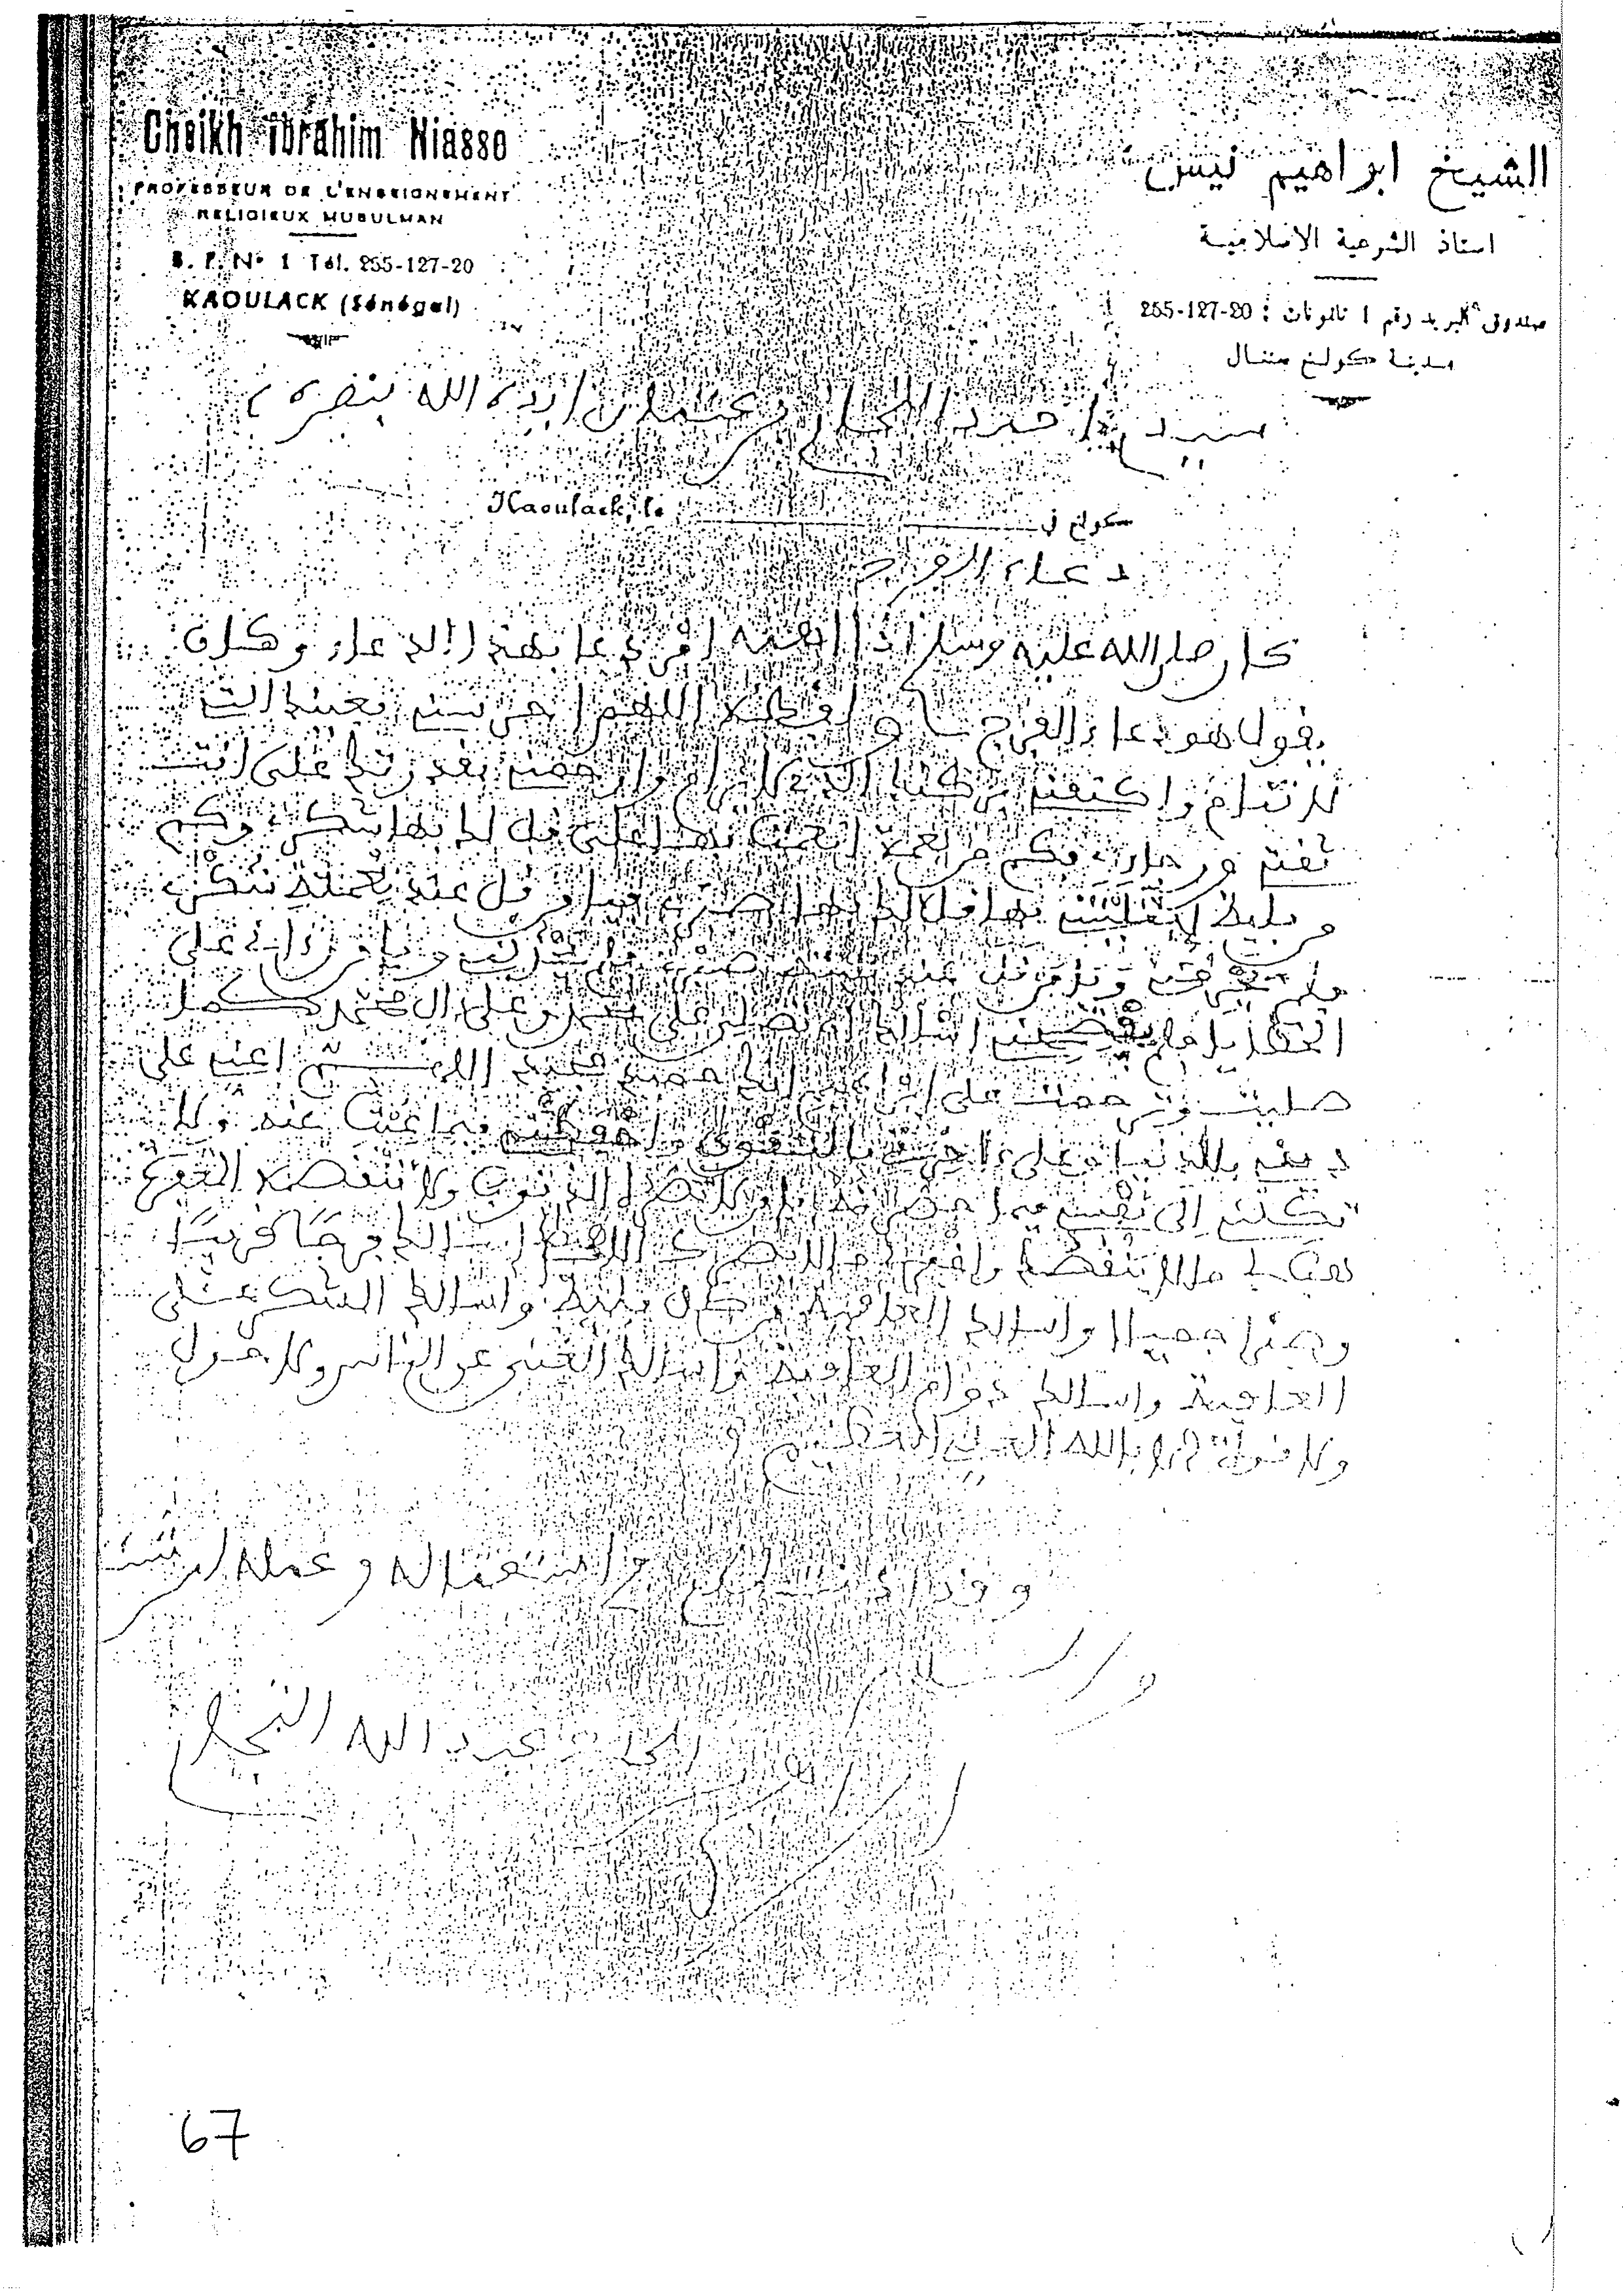 Cheikh Ibrahim Niasse
PROFESSEUR DE L'ENSEIGNEMENT
RELIGIEUX MUSULMAN
B. P. N° 1 Tél. 255-127-20
KAOULACK (Sénégal)
الشيخ ابراهيم نيس
استاذ الشرعية الاسلامية
صندوق البريد رقم 1 تالفونات : 20-127-255
مدينة كولخ سنغال
ايده الله بنصره
Kaoulack, le
كولخ في
دعاء الفرج
كان صلى الله عليه وسلم اذا اهمه امر دعا بهذا الدعاء وكان
يقول هو دعاء الفرج اللهم احرسني بعينك التي
لا تنام واكنفني بركنك الذي لا يرام وارحمني بقدرتك على انت
ثقتي ورجاءي فكم من نعمة انعمت بها علي قل لك بها شكري وكم
من بلية ابتليتني بها قل لك بها صبري فيا من قل عند نعمته شكري
فلم يحرمني ويا من قل عند صبري فلم ويا من رآني على
الخطايا فلم يفضحني اسألك ان تصلي على محمد وعلى آل محمد كما
صليت وترحمت على ابراهيم انك حميد مجيد اللهم اعني على
ديني بالدنيا وعلى آخرتي بالتقوى واحفظني فيما غبت عنه ولا
تكلني إلى نفسي فيما يا من لا تضره الذنوب ولا تنقصه المغفرة
هب لي ما لا ينقصك واغفر لي ما لا يضرك اللهم اني اسألك فرجا قريبا
وصبرا جميلا واسألك العافية من كل بلية واسألك الشكر على
العافية واسألك دوام العافية واسألك الغنى عن الناس ولا حول
ولا قوة الا بالله العلي العظيم
وقد واستعماله وعمله
والسلام
عبد الله التجاني
67